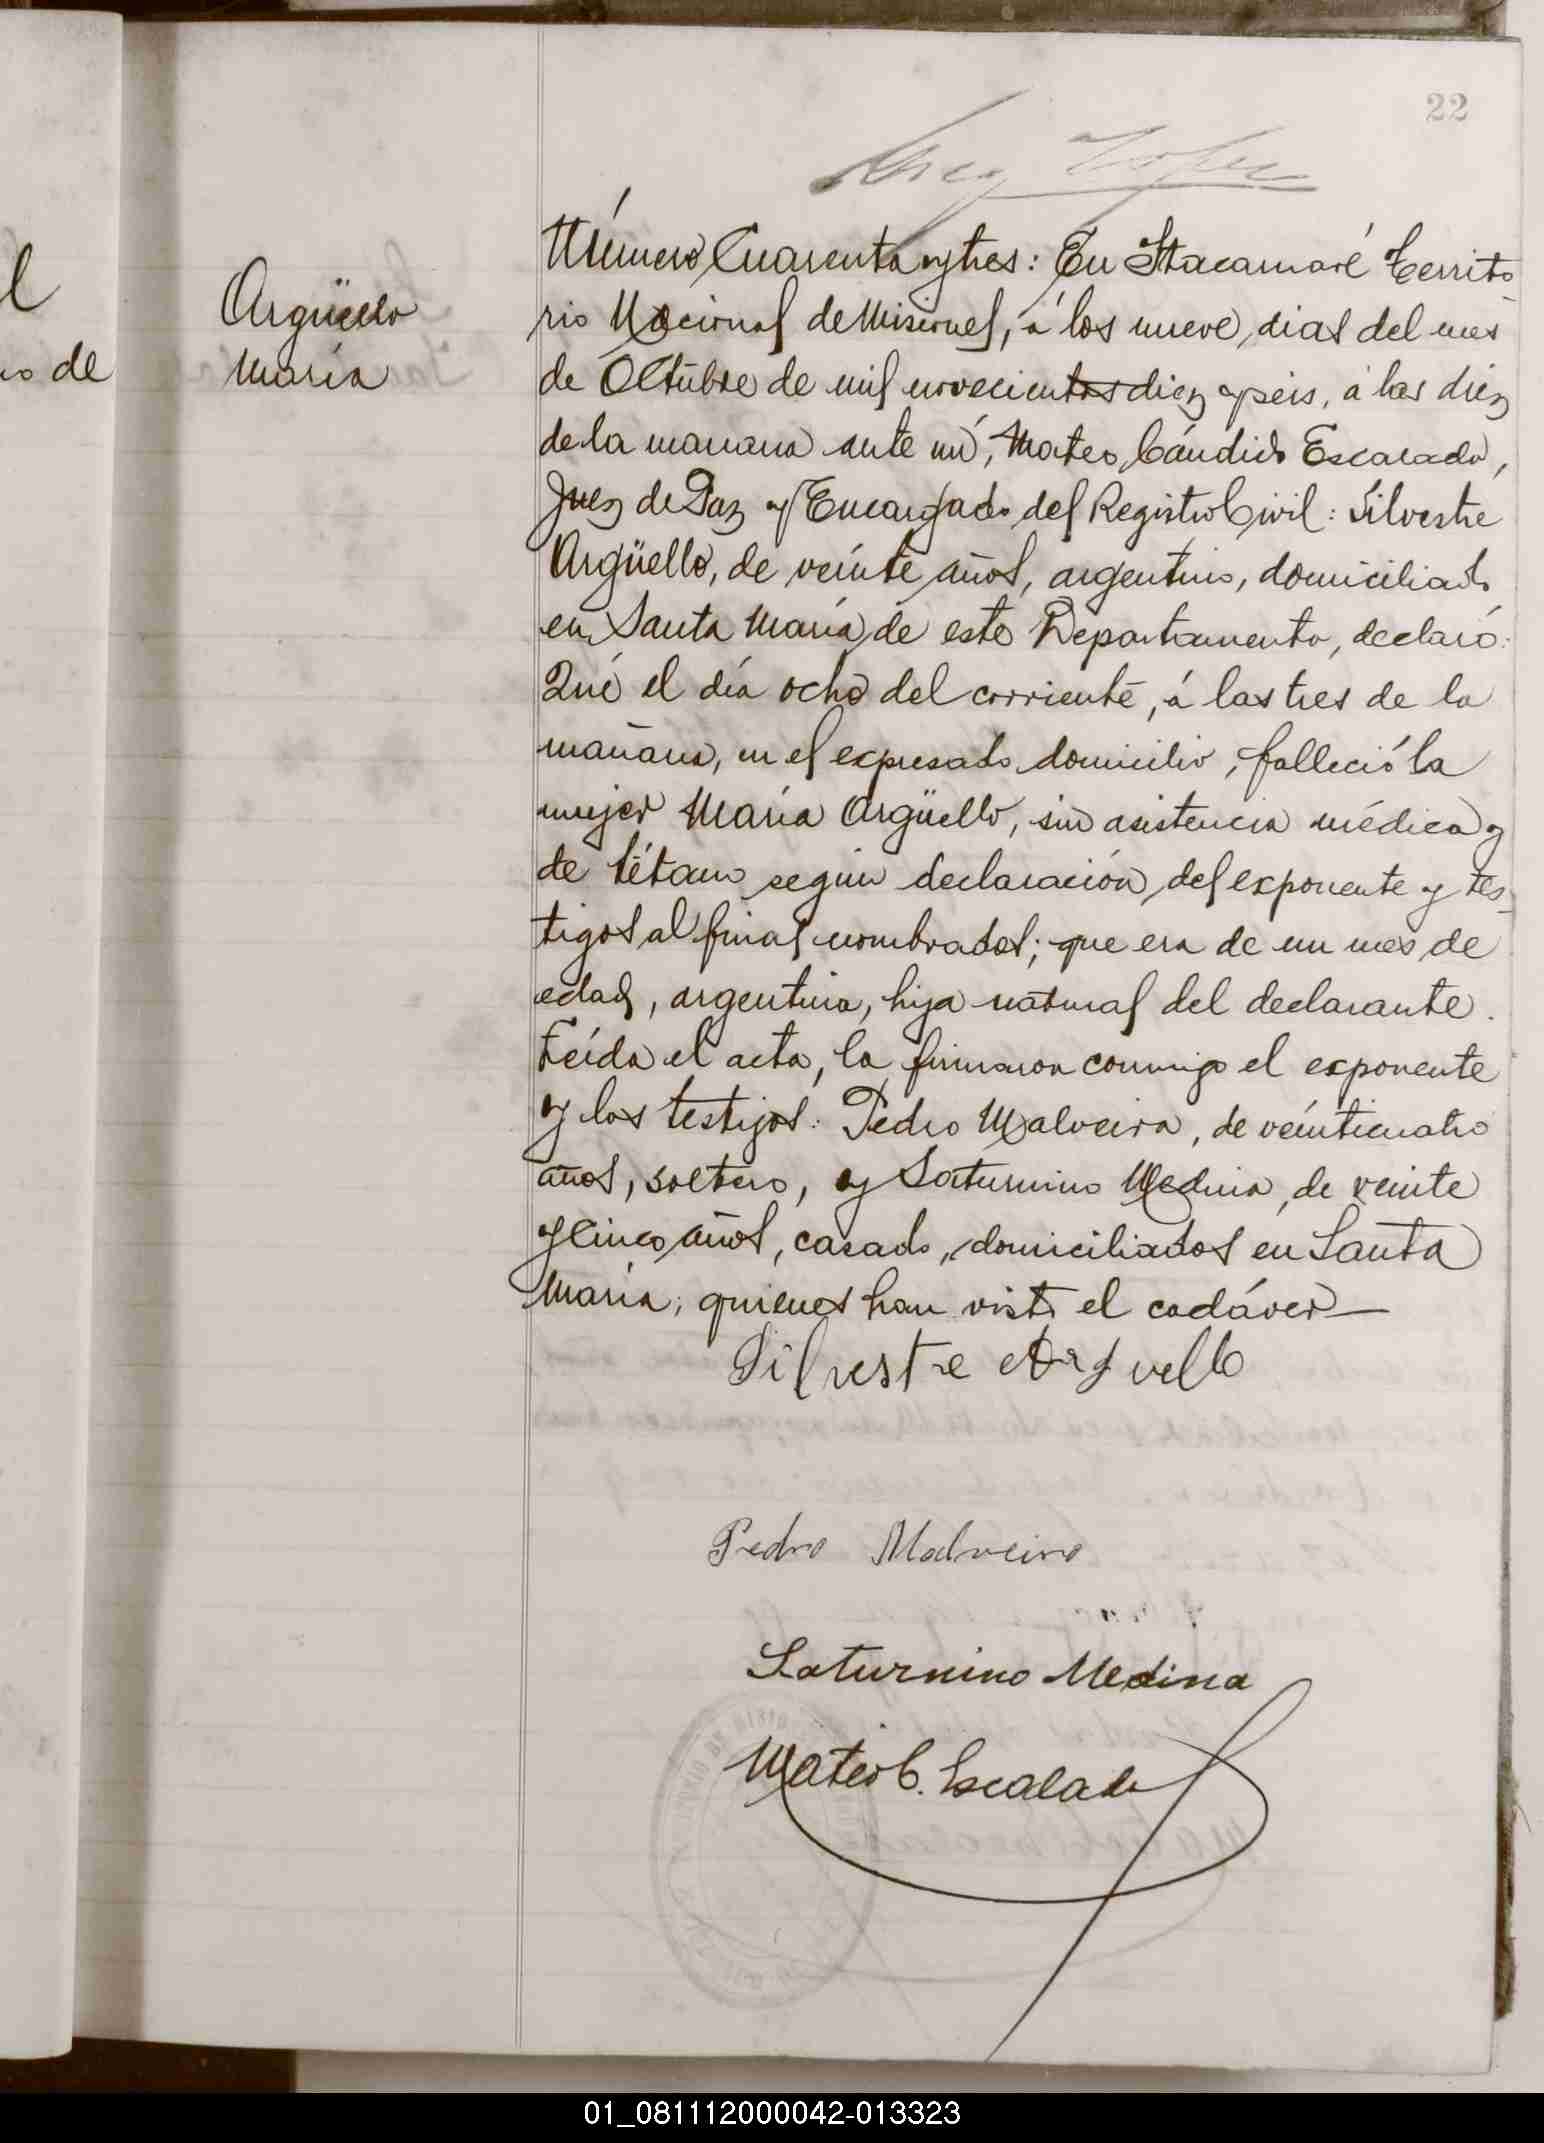 22
l
Argüello
io de
María
Número Cuarenta y tres: En Itacaruaré Territo
rio Nacional de Misiones, á los nueve dias del mes
de Octubre de mil novecientos diez y seis, á las diez
de la mañana ante mí, Mateo Cándido Escalada,
Juez de Paz y Encargado del Registro Civil: Silvestre
Argüello, de veinte años, argentino, domiciliado
en Santa María de este Departamento, declaró:
Qué el día ocho del corriente, á las tres de la
mañana, en el expresado domicilio, falleció la
mujer María Argüello, sin asistencia médica y
de tétano según declaración del exponente y tes-
tigos al final nombrados; que era de un mes de
edad, argentina, hija natural del declarante.
Leída el acta, la firmaron conmigo el exponente
y los testigos: Pedro Malveira, de veinticuatro
años, soltero, y Saturnino Medina, de veinte
y cinco años, casado, domiciliados en Santa
María; quienes han visto el cadáver—
Silvestre Arguello
Pedro Malveira
Saturnino Medina
Mateo C. Escalada
01_081112000042-013323